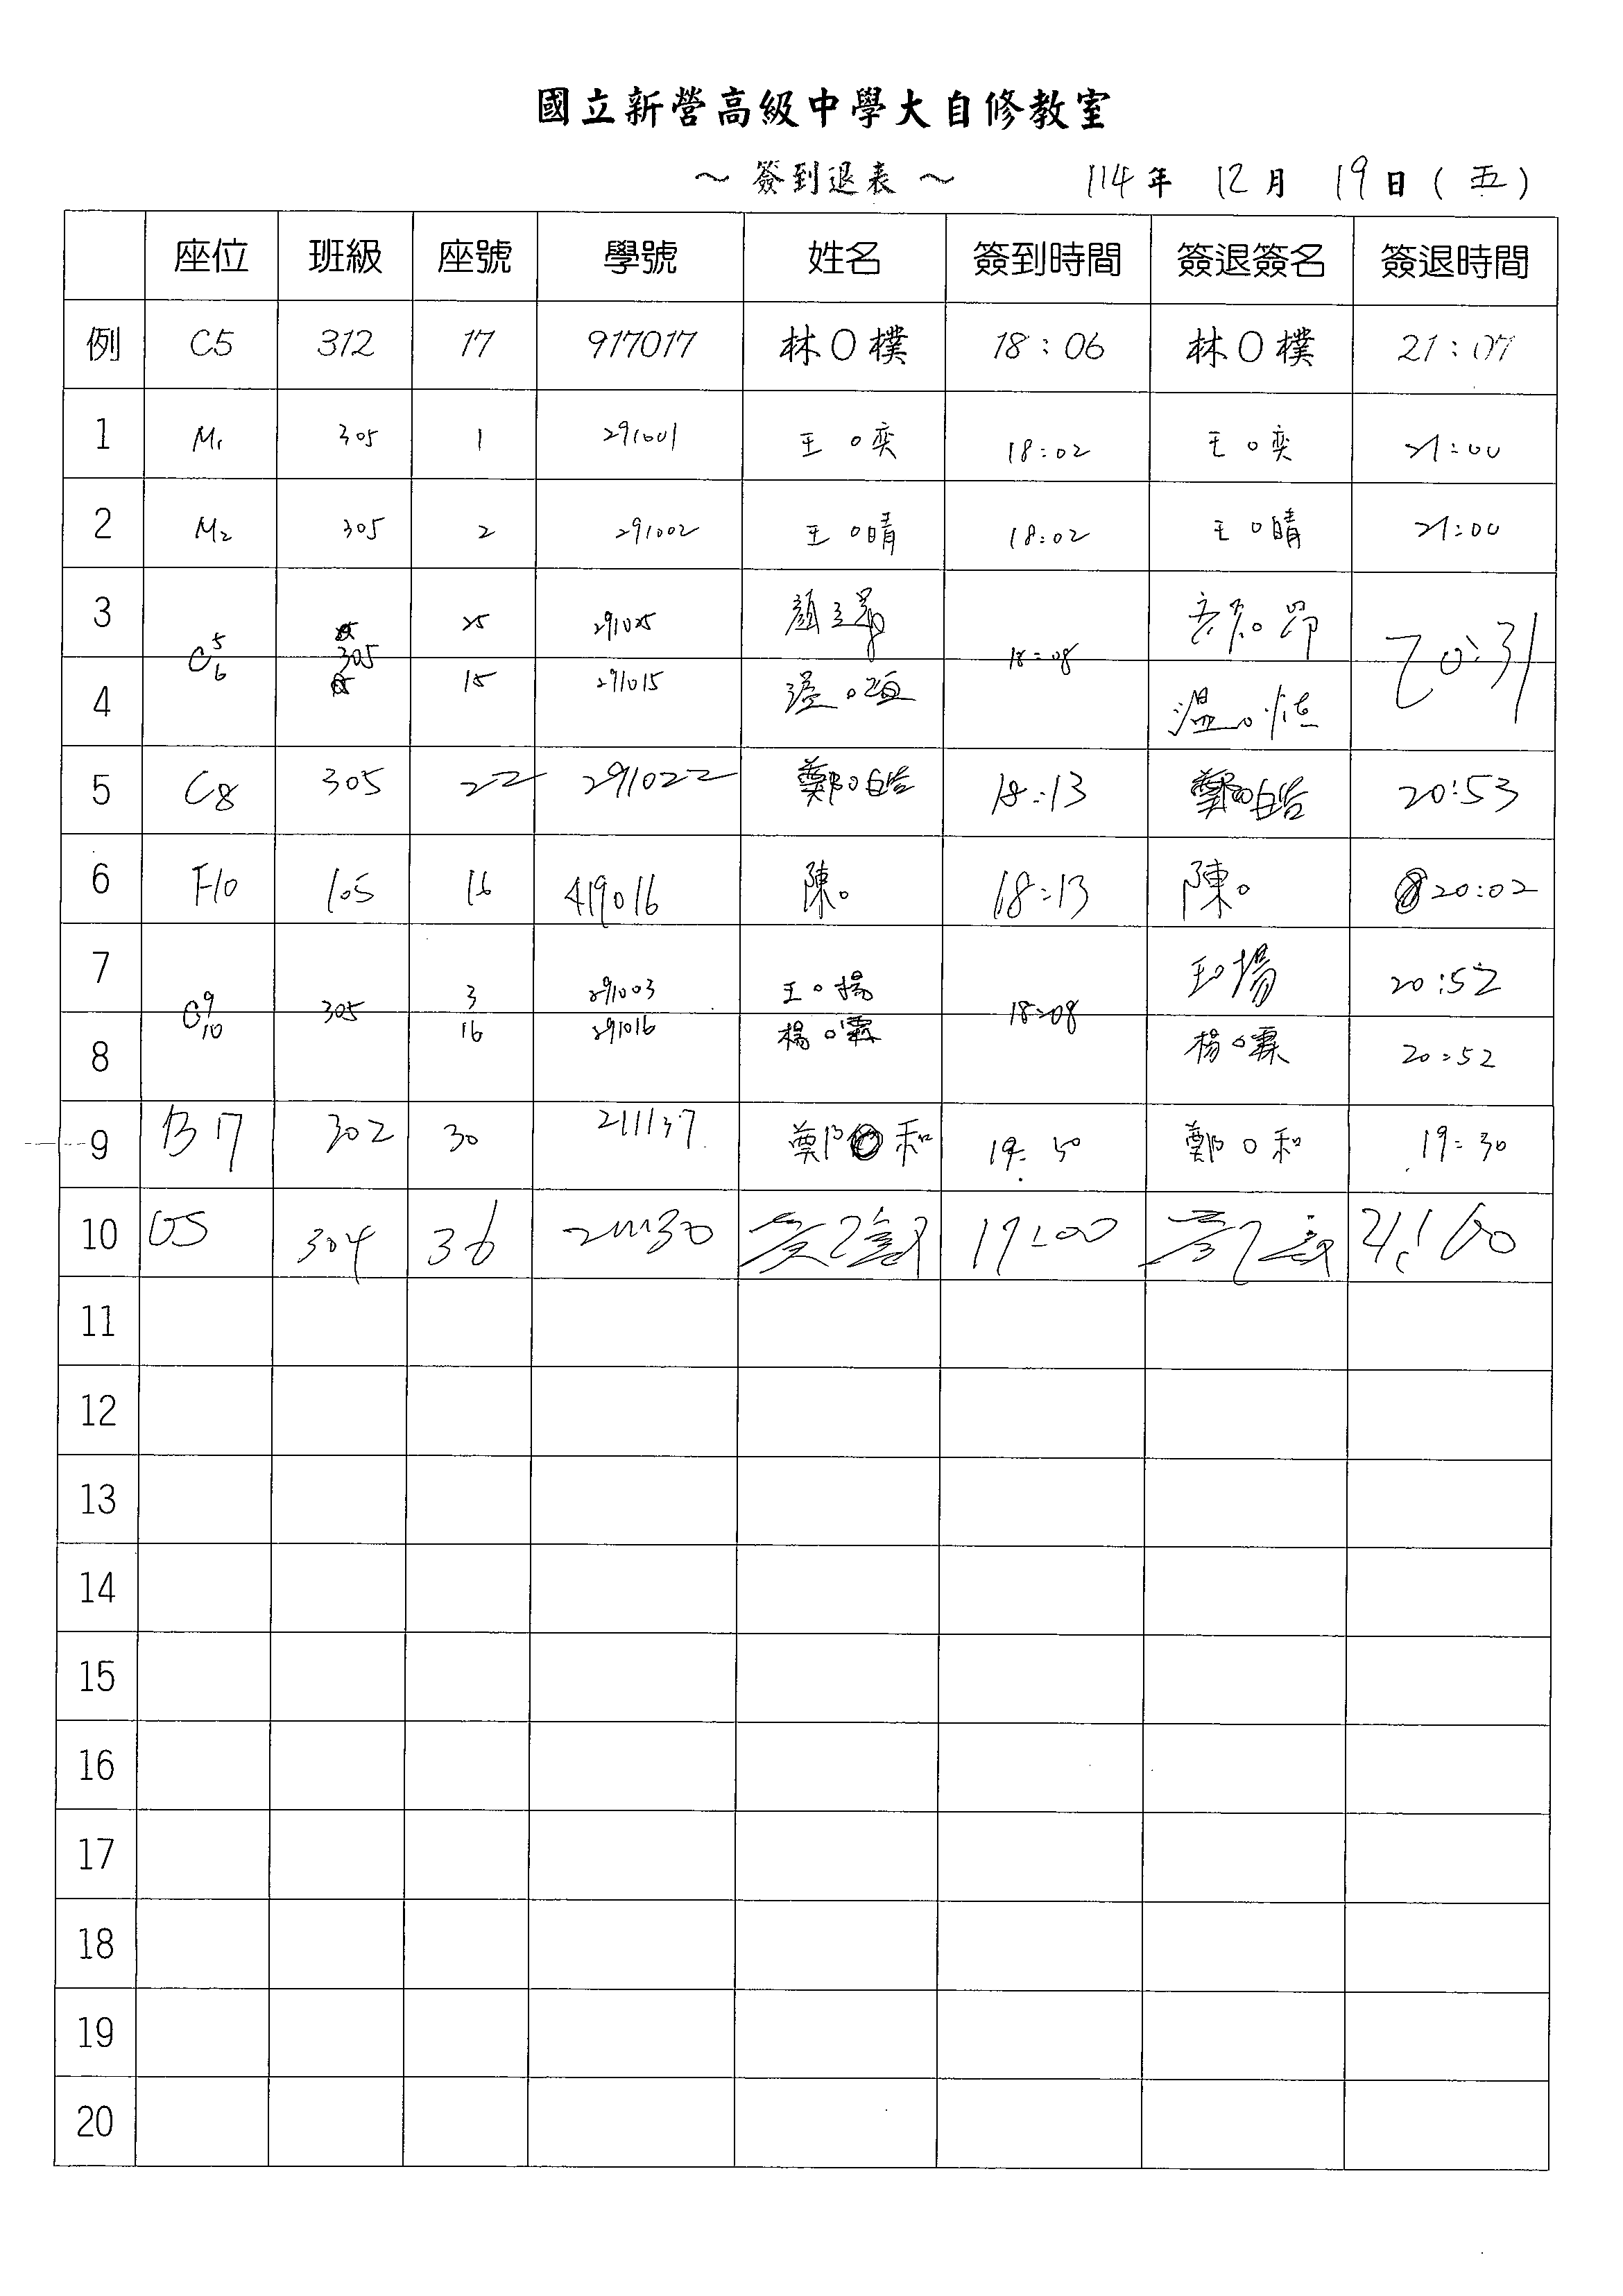 國立新營高級中學大自修教室
～ 簽到退表 ～ 114年 12月 19日(五)
座位 班級 座號 學號 姓名 簽到時間 簽退簽名 簽退時間
例 C5 312 17 917017 林O樸 18:06 林O樸 21:07
1 M1 305 1 291001 王O奕 18:02 王O奕 21:00
2 M2 305 2 291002 王O晴 18:02 王O晴 21:00
3 C5 305 25 291025 顏 18:08 20:31
4 6 15 291015 溫O恒 溫O恒
5 C8 305 22 291022 鄭O皓 18:13 鄭O皓 20:53
6 F10 105 16 419016 陳O 18:13 陳O 20:02
7 C9 305 3 291003 王O揚 18:08 王O揚 20:52
8 10 16 291016 楊O霖 楊O霖 20:52
9 B17 302 30 211137 鄭O和 鄭O和 19:30
10 304 36 211130 19:00
11
12
13
14
15
16
17
18
19
20